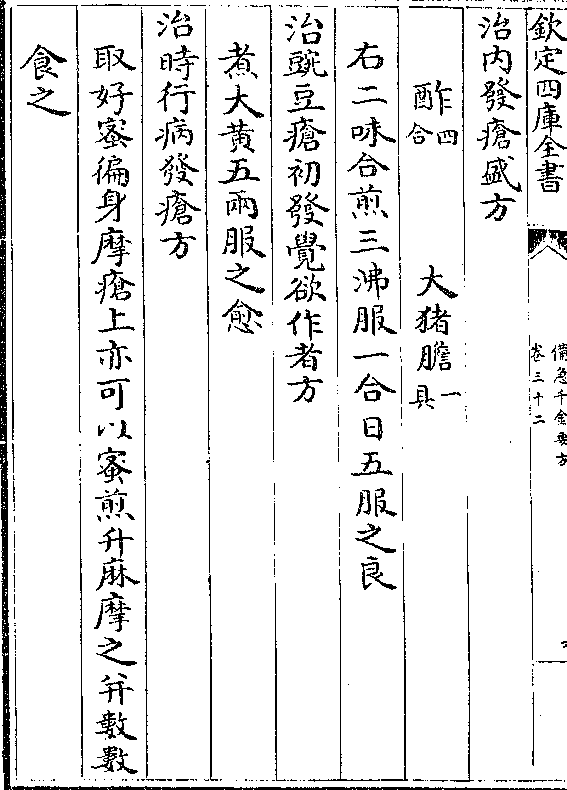 欽定四庫全書
備急千金要方
卷三十二
治内發瘡盛方
酢四合 大猪膽一具
右二味合煎三沸服一合日五服之良
治豌豆瘡初發覺欲作者方
煮大黄五兩服之愈
治時行病發瘡方
取好蜜徧身摩瘡上亦可以蜜煎升麻摩之并數數
食之